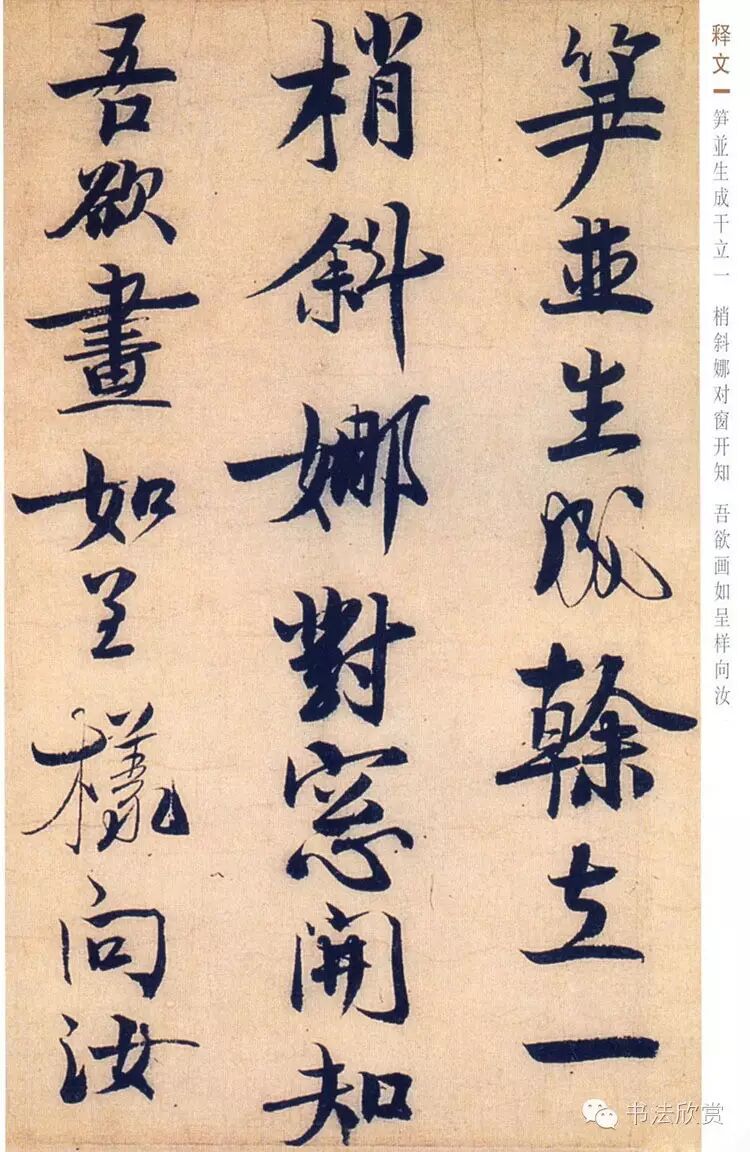 笋並生成榦立一
梢斜娜對窓開知
吾欲畫如呈樣向汝
释文 笋並生成干立一 梢斜娜对窗开知 吾欲画如呈样向汝
书法欣赏